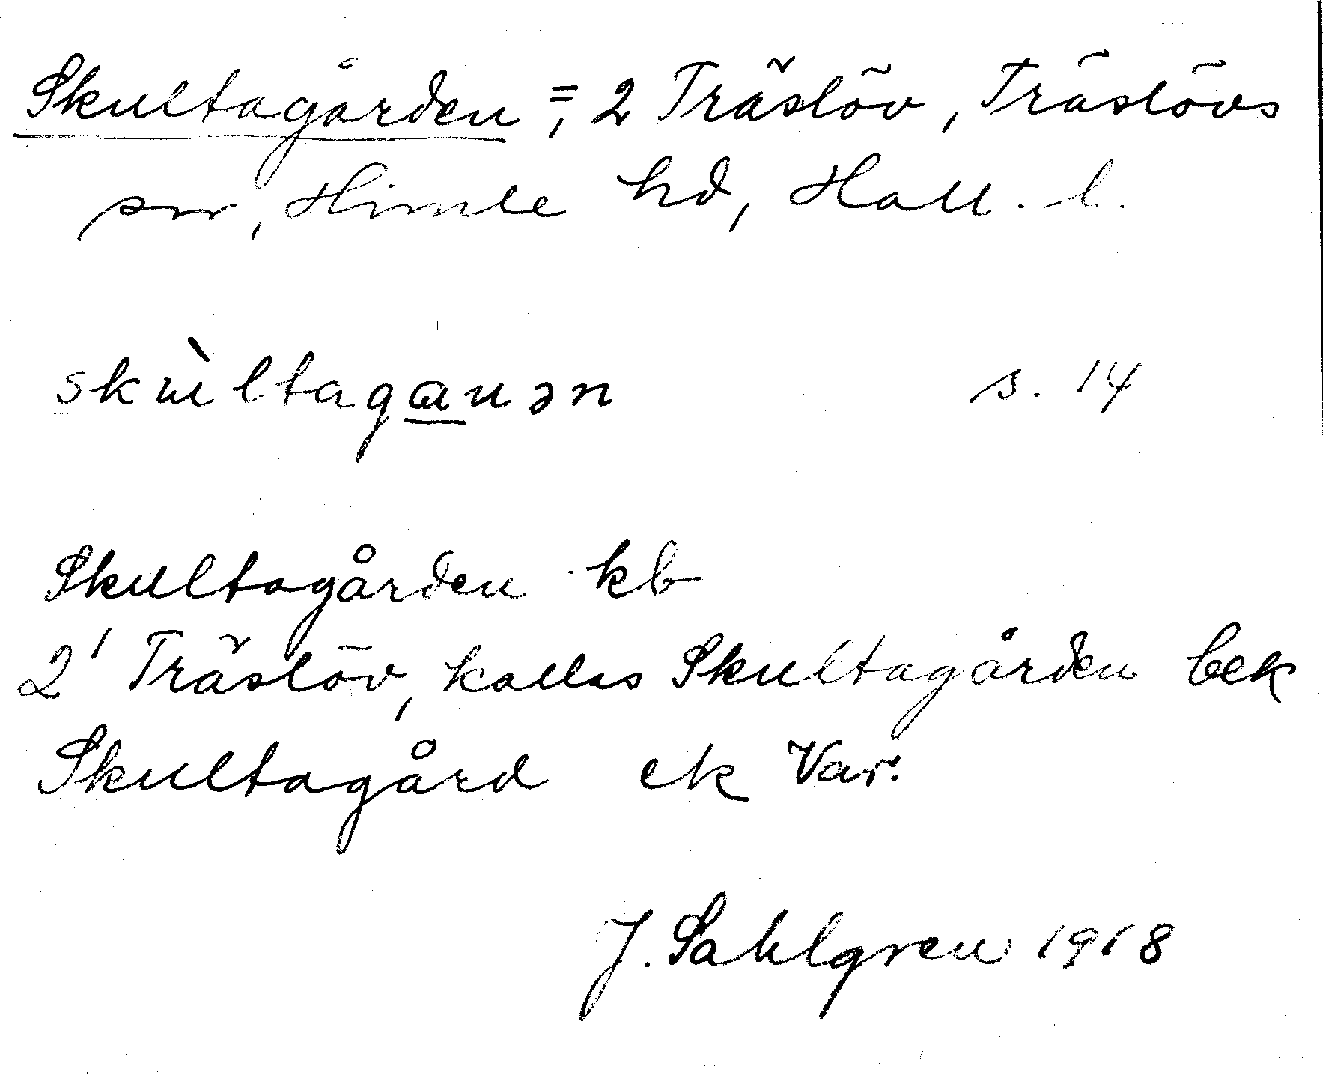 Skultagården =, 2 Träslöv, Träslövs
sn, Himle hd, Hall. l.
skùltagauən s. 14
Skultagården kb
2¹ Träslöv, kallas Skultagården bek
Skultagård ek Var.
J. Sahlgren 1918